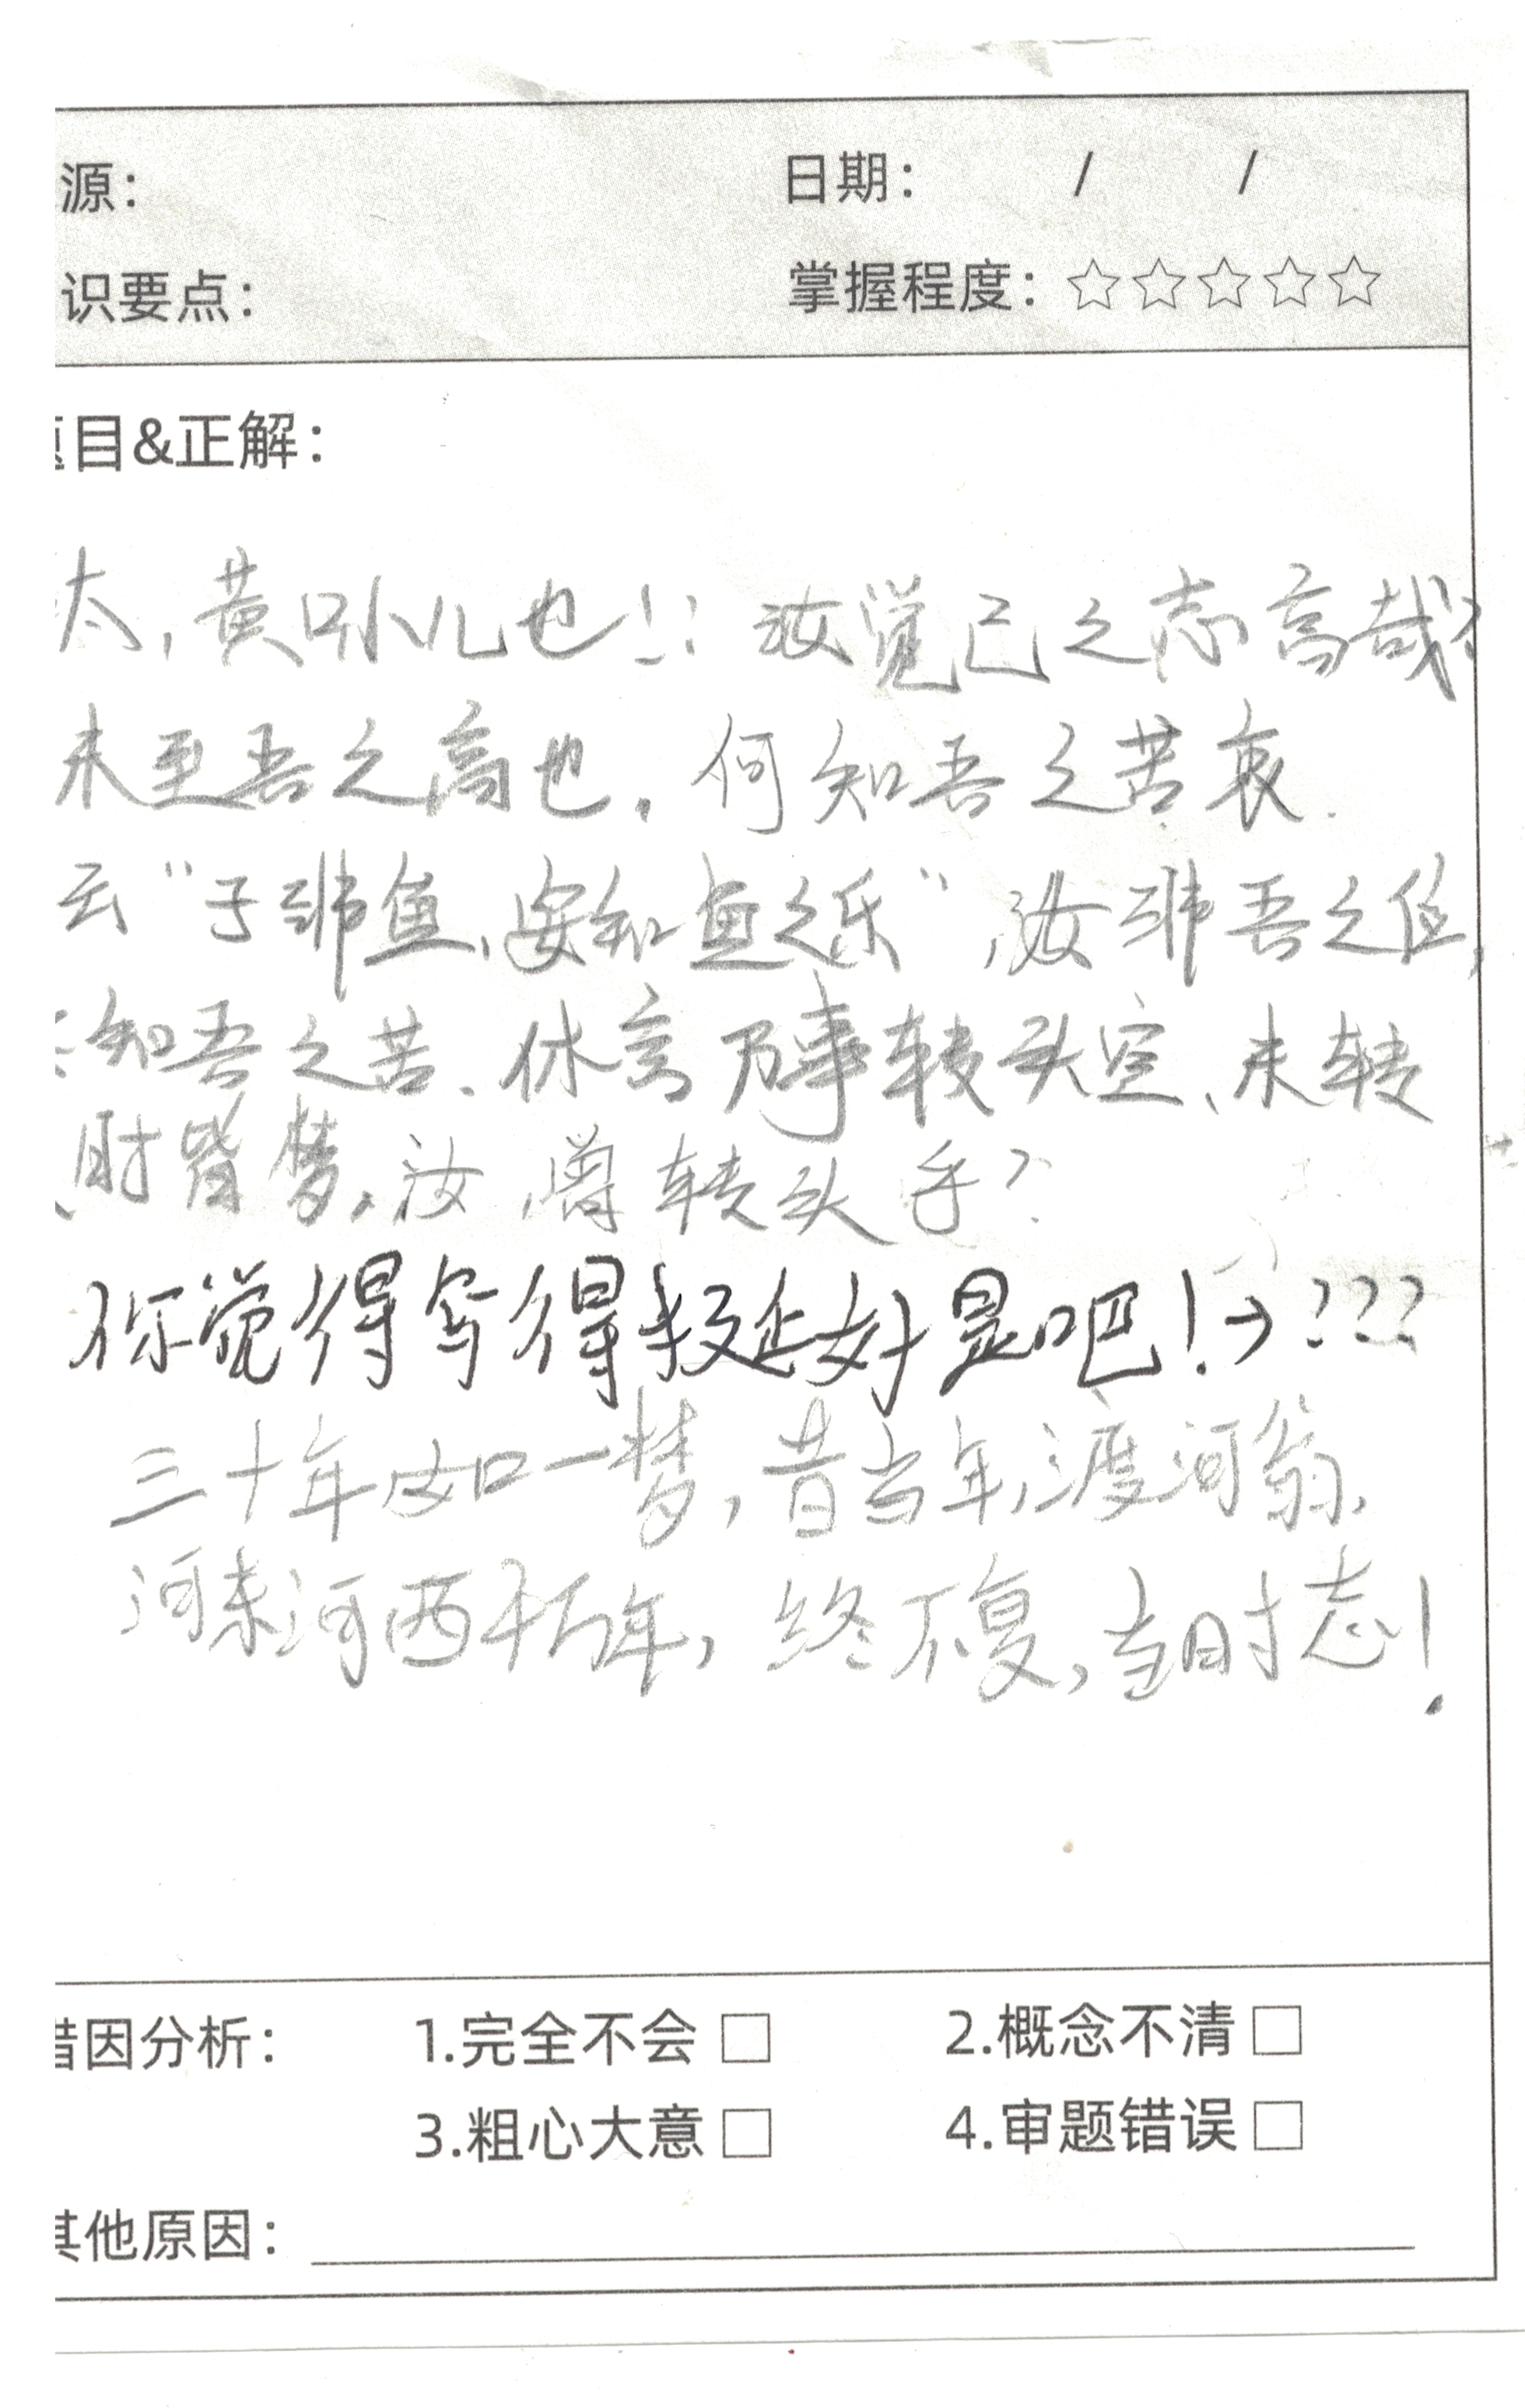 源： 日期： / /
识要点： 掌握程度：☆☆☆☆☆
目&正解：
太，黄口小儿也！！汝觉己之志高哉？
未至吾之高也，何知吾之苦衷．
云“子非鱼，安知鱼之乐”，汝非吾之位，
知吾之苦．休言万事转头空、未转
时皆梦，汝曾转头乎？
你觉得写得挺好是吧！→？？？
三十年如一梦，昔当年，渡河翁，
河东河西千万年，终不复，当时志！
错因分析： 1.完全不会□ 2.概念不清□
3.粗心大意□ 4.审题错误□
其他原因：